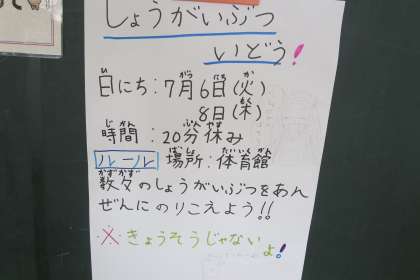 しょうがいぶつ
いどう!
日にち:7月6日(火)
8日(木)
時間:20分休み
ルール 場所:体育館
数々のしょうがいぶつをあん
ぜんにのりこえよう!!
※きょうそうじゃない
よ!